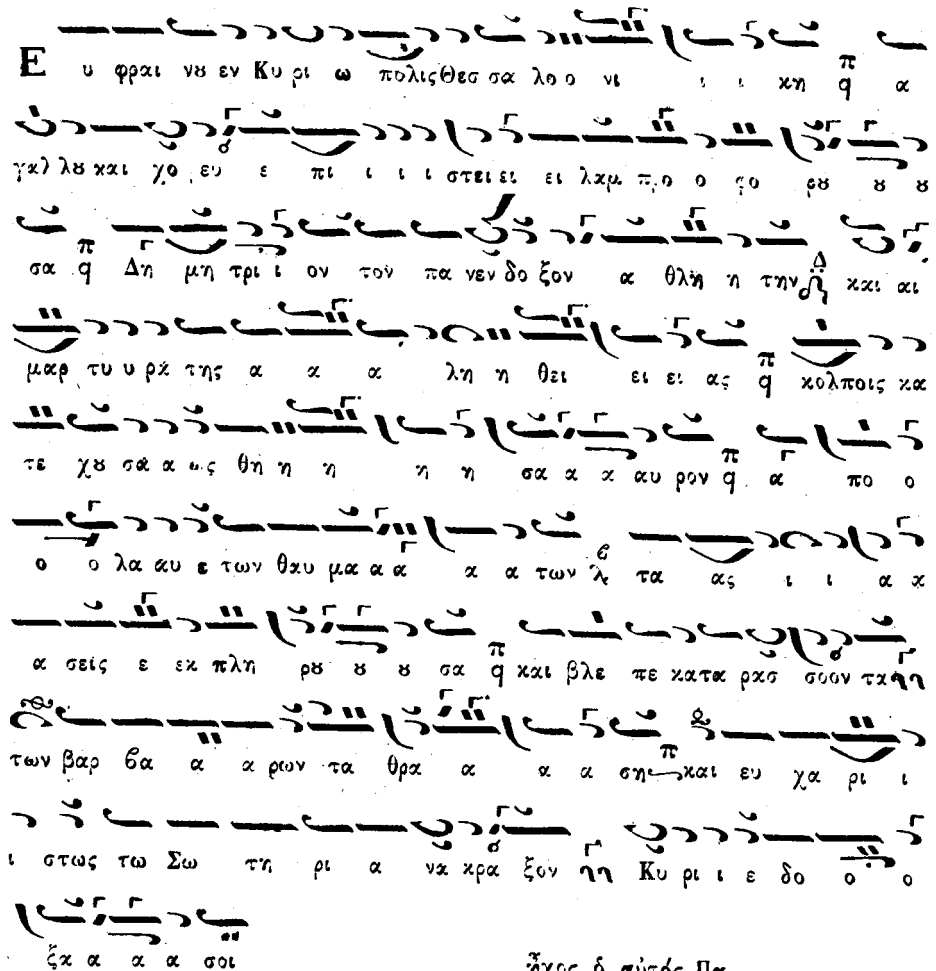 Ε υ φραι νȣ εν Κυ ρι ω πολις Θεσ σα λο ο νι ι ι κη π q α
γαλ λȣ και χο ευ ε πι ι ι ι στει ει ει λαμ προ ο φο ρȣ ȣ ȣ
σα π q Δη μη τρι ι ον τον πα νεν δο ξον α θλη η την Δ και αι
μαρ τυ υ ρα της α α α λη η θει ει ει ας π q κολποις κα
τε χȣ σα α ως θη η η η η σα α α αυ ρον π q α πο ο
ο ο λα αυ ε των θαυ μα α α α α των λ τα ας ι ι α α
α σεις ε εκ πλη ρȣ ȣ ȣ σα π q και βλε πε κατα ρασ σο ον τα
των βαρ βα α α ρων τα θρα α α α ση π και ευ χα ρι ι
ι στως τω Σω τη ρι α να κρα ξον Κυ ρι ι ε δο ο ο
ξα α α α σοι
ἦχος δ αὐτός Πα